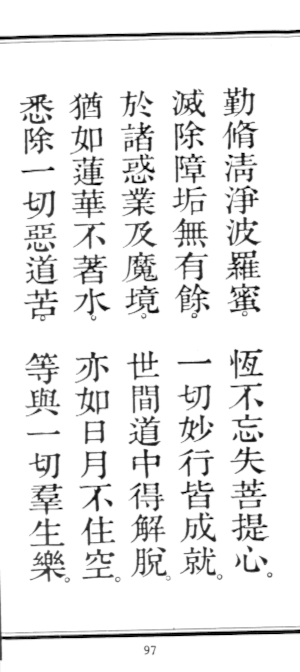 勤脩淸淨波羅蜜。恆不忘失菩提心。
滅除障垢無有餘。一切妙行皆成就。
於諸惑業及魔境。世間道中得解脫。
猶如蓮華不著水。亦如日月不住空。
悉除一切惡道苦。等與一切羣生樂。
97